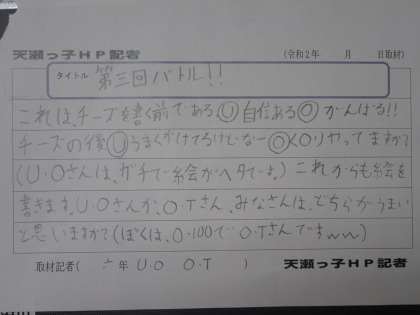 天瀬っ子HP記者 (令和2年 月 日取材)
タイトル 第三回バトル!!
これは、チーズを書く前である Ⓤ 自信ある Ⓞ がんばる!!
チーズの後 Ⓤ うまくかけてるけどなー Ⓞ くつりやってますか?
(U・Oさんは、ガチで絵がヘタです。) これからも絵を
書きます。U・Oさんか、O・Tさん、みなさんは、どちらがうまい
と思いますか?(ぼくは、0-100でO・Tさんです〜〜)
取材記者( 六年 U・O O・T ) 天瀬っ子HP記者